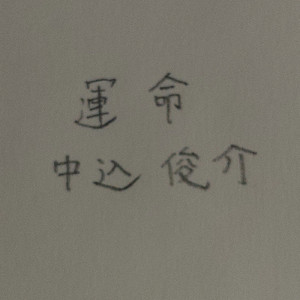 運命
中込 俊介